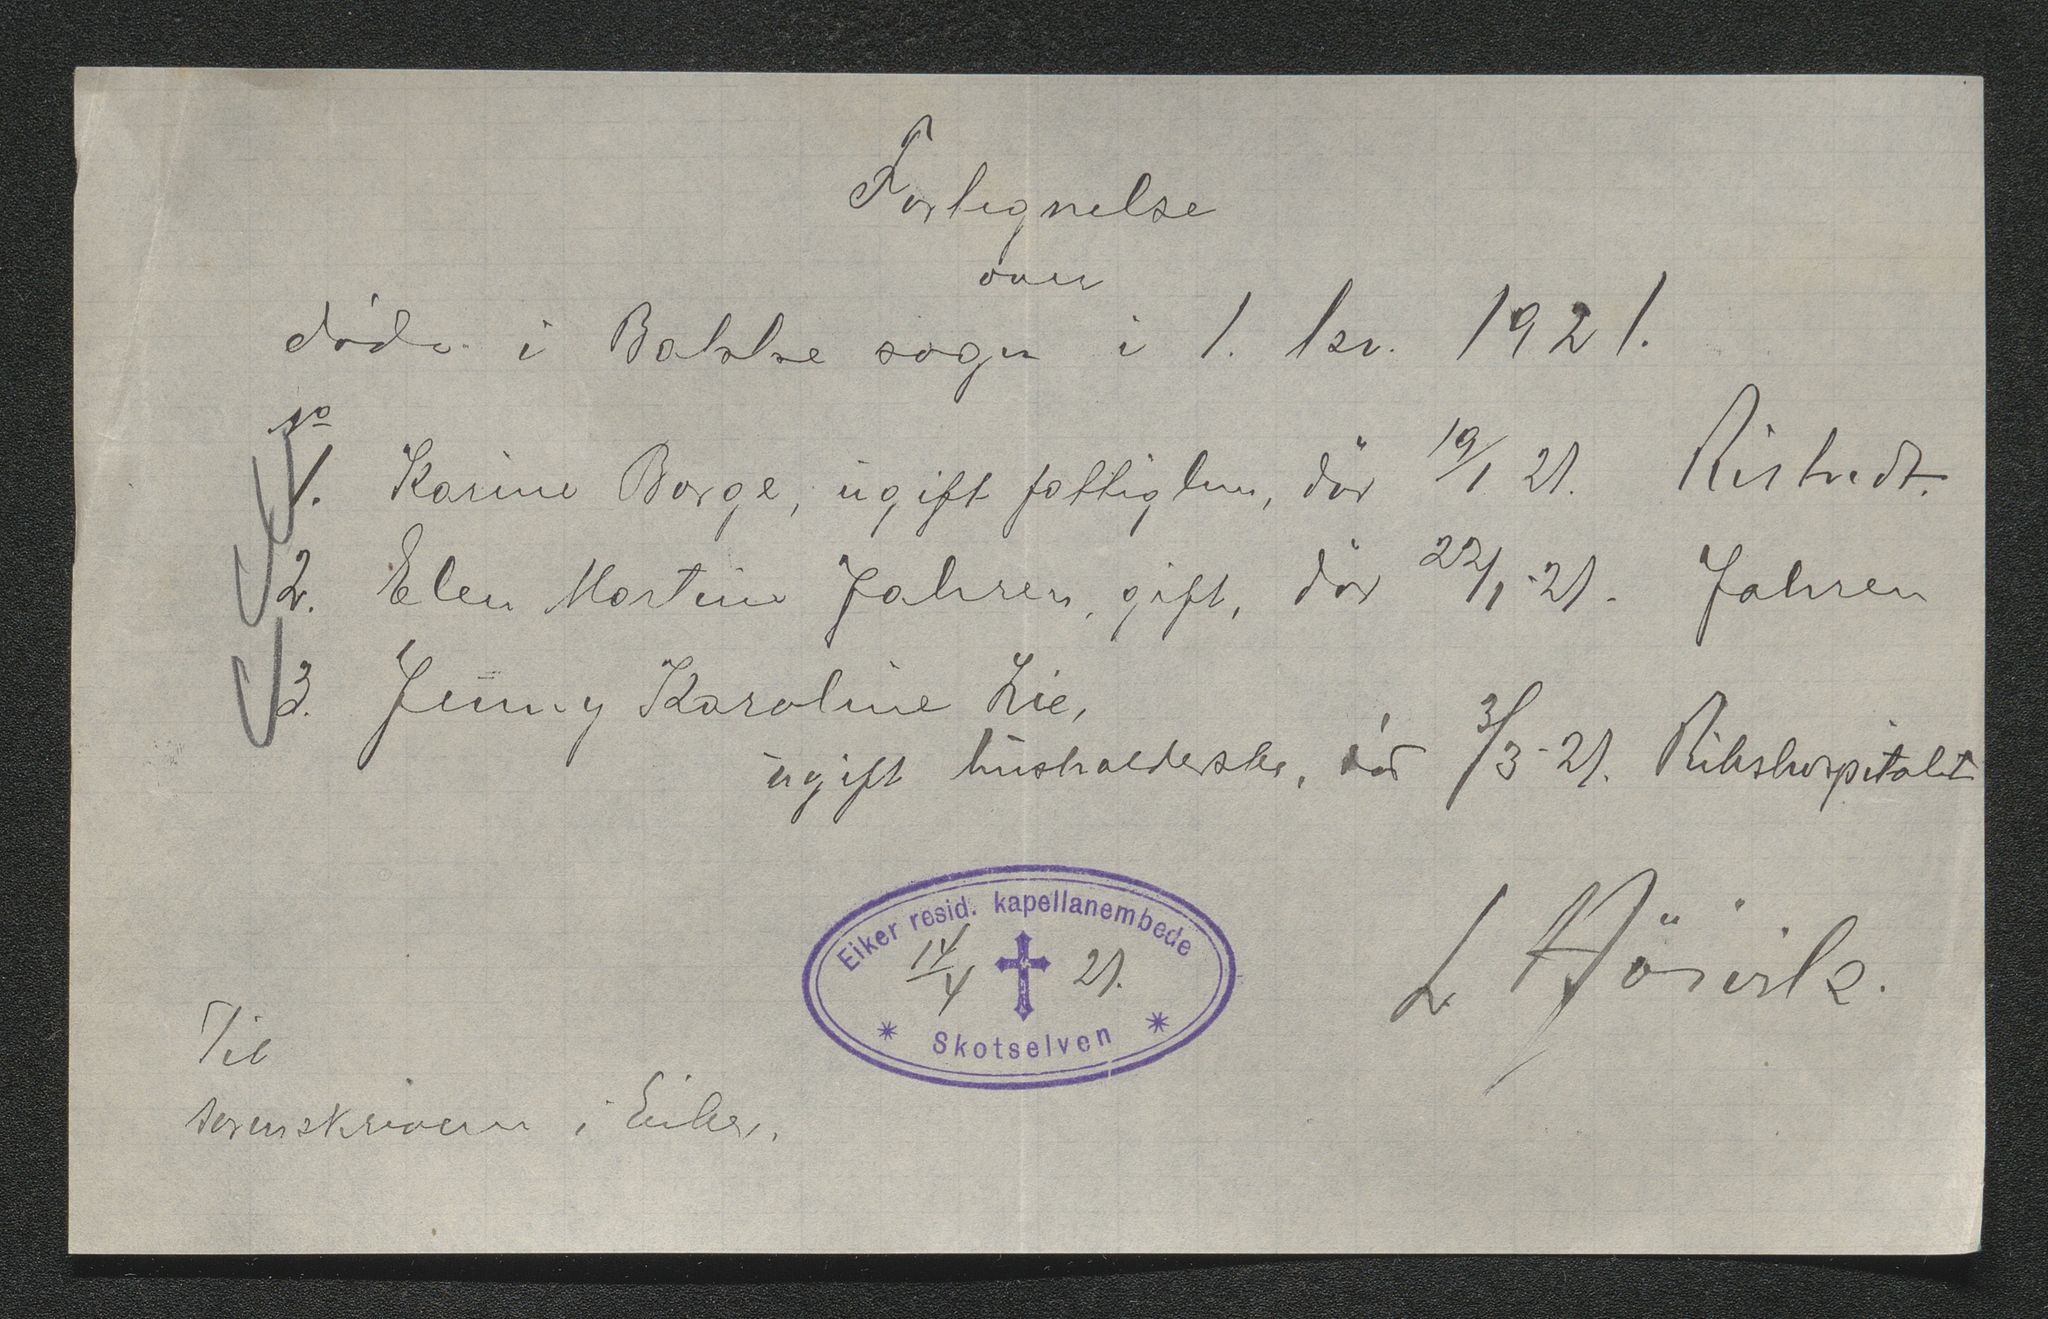 Fortegnelse
over
døde i Bakke sogn i 1. kv. 1921.
No
1. Karine Borge, ugift fattiglem, död 19/1 21. Ristvedt.
2. Elen Martine Jahren, gift, död 22/1-21. Jahren
3. Jenny Karoline Lie,
ugift husholderske, död 3/3-21. Rikshospitalet
Eiker resid. kapellanembede
14/4 21.
Skotselven
L Hörvik.
Til
sorenskriveren i Eiker.